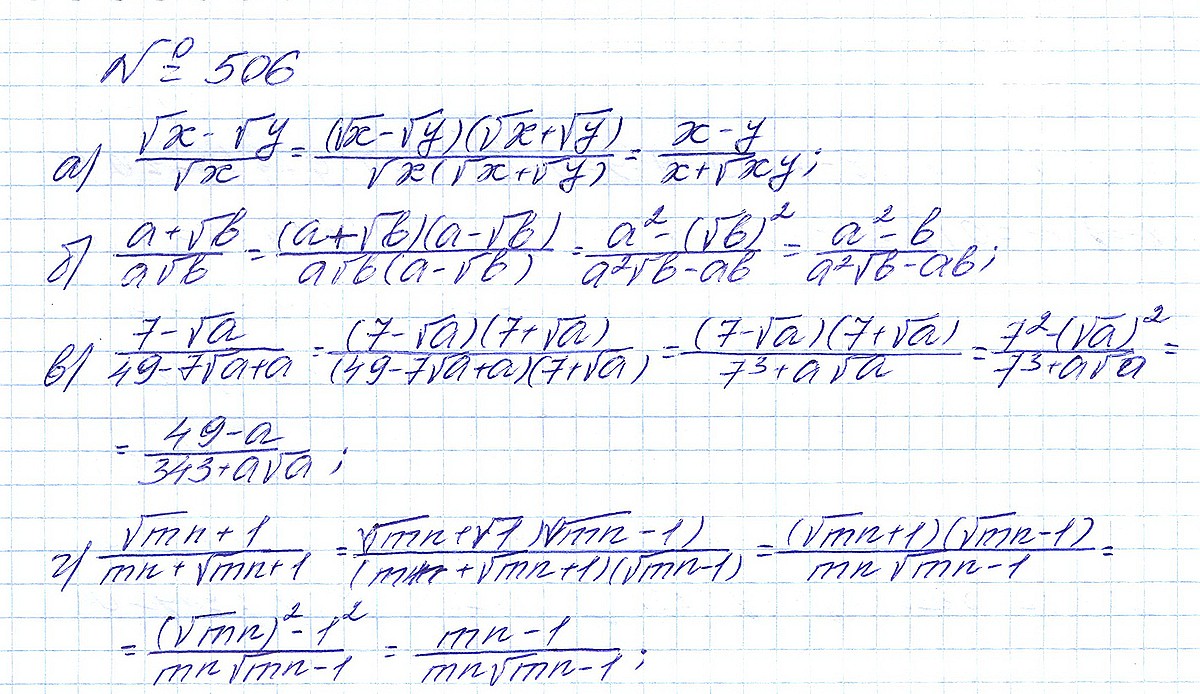 № 506
а) (√x - √y)/√x = ((√x - √y)(√x + √y))/(√x(√x + √y)) = (x - y)/(x + √xy);
б) (a + √b)/(a√b) = ((a + √b)(a - √b))/(a√b(a - √b)) = (a² - (√b)²)/(a²√b - ab) = (a² - b)/(a²√b - ab);
в) (7 - √a)/(49 - 7√a + a) = ((7 - √a)(7 + √a))/((49 - 7√a + a)(7 + √a)) = ((7 - √a)(7 + √a))/(7³ + a√a) = (7² - (√a)²)/(7³ + a√a) =
= (49 - a)/(343 + a√a);
г) (√mn + 1)/(mn + √mn + 1) = (√mn + √1)(√mn - 1)/((mn + √mn + 1)(√mn - 1)) = ((√mn + 1)(√mn - 1))/(mn√mn - 1) =
= ((√mn)² - 1²)/(mn√mn - 1) = (mn - 1)/(mn√mn - 1);